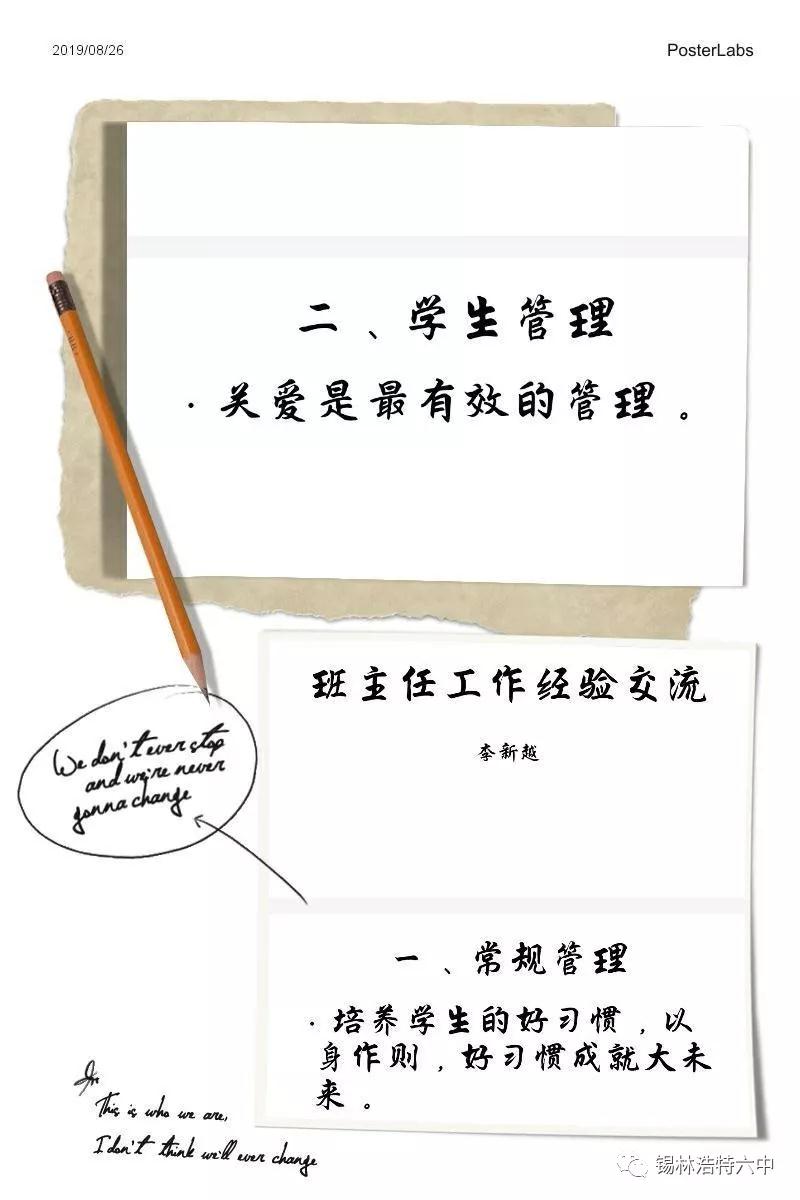 2019/08/26
PosterLabs
二、学生管理
·关爱是最有效的管理。
班主任工作经验交流
李新越
We don't ever stop
and we're never
gonna change
一、常规管理
·培养学生的好习惯，以
身作则，好习惯成就大未
来。
This is who we are,
I don't think we'll ever change
锡林浩特六中